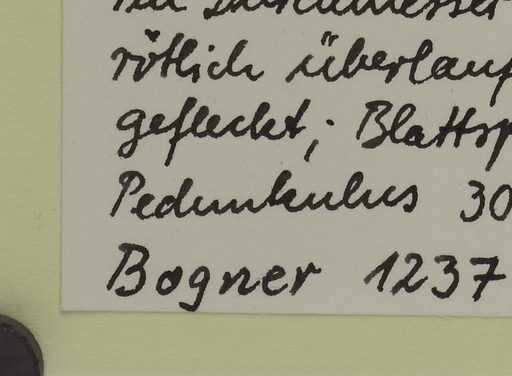 im Durchmesser
rötlich überlauf
gefleckt; Blattsp
Pedunkulus 30
Bogner 1237